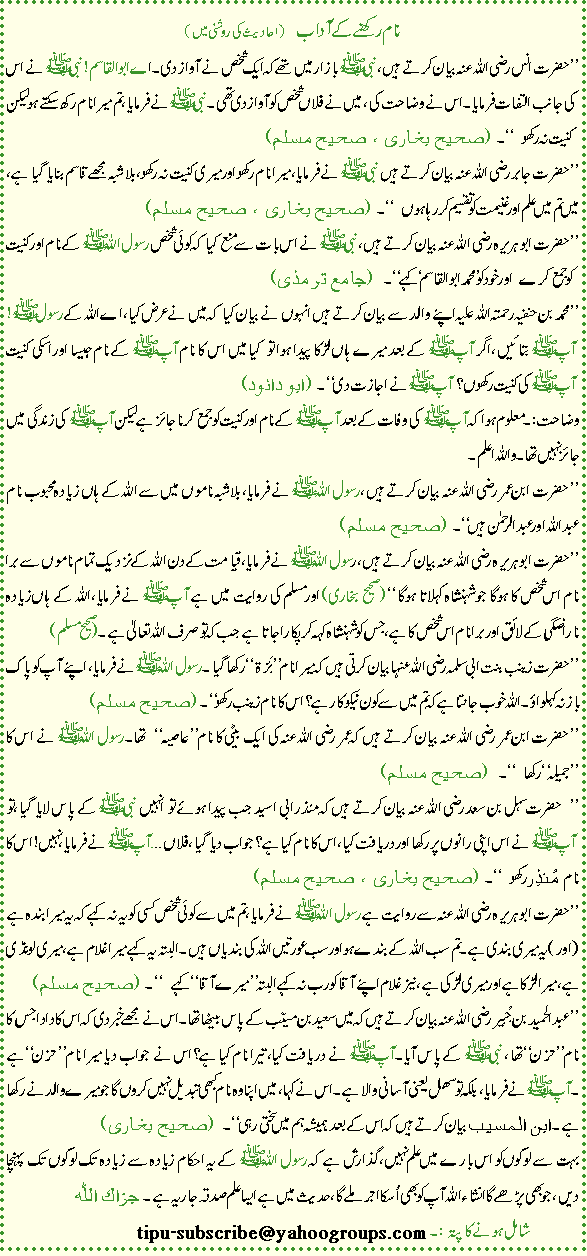 نام رکھنے کے آداب (احادیث کی روشنی میں)
’’حضرت انس رضی اللہ عنہ بیان کرتے ہیں، نبیﷺ بازار میں تھے کہ ایک شخص نے آواز دی۔ اے ابوالقاسم! نبیﷺ نے اس
کی جانب التفات فرمایا۔ اس نے وضاحت کی، میں نے فلاں شخص کو آواز دی تھی۔ نبیﷺ نے فرمایا، تم میرا نام رکھ سکتے ہو لیکن
کنیت نہ رکھو ‘‘۔ (صحیح بخاری ، صحیح مسلم)
’’حضرت جابر رضی اللہ عنہ بیان کرتے ہیں نبیﷺ نے فرمایا، میرا نام رکھو اور میری کنیت نہ رکھو، بلاشبہ مجھے قاسم بنایا گیا ہے،
میں تم میں علم اور غنیمت کو تقسیم کر رہا ہوں ‘‘۔ (صحیح بخاری ، صحیح مسلم)
’’حضرت ابو ہریرہ رضی اللہ عنہ بیان کرتے ہیں، نبیﷺ نے اس بات سے منع کیا کہ کوئی شخص رسول اللہﷺ کے نام اور کنیت
کو جمع کرے اور خود کو محمد ابوالقاسم کہے‘‘۔ (جامع ترمذی)
’’محمد بن حنفیہ رحمتہ اللہ علیہ اپنے والد سے بیان کرتے ہیں انہوں نے بیان کیا کہ میں نے عرض کیا، اے اللہ کے رسولﷺ!
آپﷺ بتائیں، اگر آپﷺ کے بعد میرے ہاں لڑکا پیدا ہوا تو کیا میں اس کا نام آپﷺ کے نام جیسا اور اسکی کنیت
آپﷺ کی کنیت رکھوں؟ آپﷺ نے اجازت دی‘‘۔ (ابو دائود)
وضاحت:۔ معلوم ہوا کہ آپﷺ کی وفات کے بعد آپﷺ کے نام اور کنیت کو جمع کرنا جائز ہے لیکن آپﷺ کی زندگی میں
جائز نہیں تھا۔ واللہ اعلم۔
’’حضرت ابن عمر رضی اللہ عنہ بیان کرتے ہیں، رسول اللہﷺ نے فرمایا، بلاشبہ ناموں میں سے اللہ کے ہاں زیادہ محبوب نام
عبداللہ اور عبدالرحمٰن ہیں‘‘۔ (صحیح مسلم)
’’حضرت ابو ہریرہ رضی اللہ عنہ بیان کرتے ہیں، رسول اللہﷺ نے فرمایا، قیامت کے دن اللہ کے نزدیک تمام ناموں سے برا
نام اس شخص کا ہوگا جو شہنشاہ کہلاتا ہوگا‘‘ (صحیح بخاری) اور مسلم کی روایت میں ہے آپﷺ نے فرمایا، اللہ کے ہاں زیادہ
ناراضگی کے لائق اور برا نام اس شخص کا ہے، جس کو شہنشاہ کہہ کر پکارا جاتا ہے جب کہ تو صرف اللہ تعالیٰ ہے۔ (صحیح مسلم)
’’حضرت زینب بنت ابی سلمہ رضی اللہ عنہا بیان کرتی ہیں کہ میرا نام ’’بَرَّۃ‘‘ رکھا گیا۔ رسول اللہﷺ نے فرمایا، اپنے آپ کو پاک
باز نہ کہلواؤ۔ اللہ خوب جانتا ہے کہ تم میں سے کون نیکوکار ہے؟ اس کا نام زینب رکھو‘‘۔ (صحیح مسلم)
’’حضرت ابن عمر رضی اللہ عنہ بیان کرتے ہیں کہ عمر رضی اللہ عنہ کی ایک بیٹی کا نام ’’عاصیہ‘‘ تھا۔ رسول اللہﷺ نے اس کا
’’جمیلہ‘‘ رکھا ‘‘۔ (صحیح مسلم)
’’ حضرت سہل بن سعد رضی اللہ عنہ بیان کرتے ہیں کہ منذر ابی اسید جب پیدا ہوئے تو انہیں نبیﷺ کے پاس لایا گیا، تو
آپﷺ نے اس اپنی رانوں پر رکھا اور دریافت کیا، اس کا نام کیا ہے؟ جواب دیا گیا، فلاں... آپﷺ نے فرمایا، نہیں! اس کا
نام مُنذِر رکھو ‘‘۔ (صحیح بخاری ، صحیح مسلم)
’’حضرت ابو ہریرہ رضی اللہ عنہ سے روایت ہے رسول اللہﷺ نے فرمایا، تم میں سے کوئی شخص کسی کو یہ نہ کہے کہ یہ میرا بندہ ہے
(اور) یہ میری بندی ہے۔ تم سب اللہ کے بندے ہو اور سب عورتیں اللہ کی بندیاں ہیں۔ البتہ یہ کہے میرا غلام ہے، میری لونڈی
ہے، میرا لڑکا ہے اور میری لڑکی ہے، نیز غلام اپنے آقا کو رب نہ کہے البتہ ’’میرے آقا‘‘ کہے ‘‘۔ (صحیح مسلم)
’’عبدالحمید بن جُبیر رضی اللہ عنہ بیان کرتے ہیں کہ میں سعید بن مسیّب کے پاس بیٹھا تھا۔ اس نے مجھے خبر دی کہ اس کا دادا جس کا
نام ’’حزن‘‘ تھا، نبیﷺ کے پاس آیا۔ آپﷺ نے دریافت کیا، تیرا نام کیا ہے؟ اس نے جواب دیا میرا نام ’’حزن‘‘ ہے
۔ آپﷺ نے فرمایا، بلکہ تو سھل یعنی آسانی والا ہے۔ اس نے کہا، میں اپنا وہ نام کبھی تبدیل نہیں کروں گا جو میرے والد نے رکھا
ہے۔ ابن المسیب بیان کرتے ہیں کہ اس کے بعد ہمیشہ ہم میں سختی رہی‘‘۔ (صحیح بخاری)
بہت سے لوگوں کو اس بارے میں علم نہیں، گذارش ہے کہ رسول اللہﷺ کے یہ احکام زیادہ سے زیادہ تک لوگوں تک پہنچا
دیں، جو بھی پڑھے گا انشاء اللہ آپ کو بھی اُسکا اجر ملے گا، حدیث میں ہے ایسا علم صدقہ جاریہ ہے۔ جزاک اللہ
شامل ہونے کا پتہ :۔ tipu-subscribe@yahoogroups.com